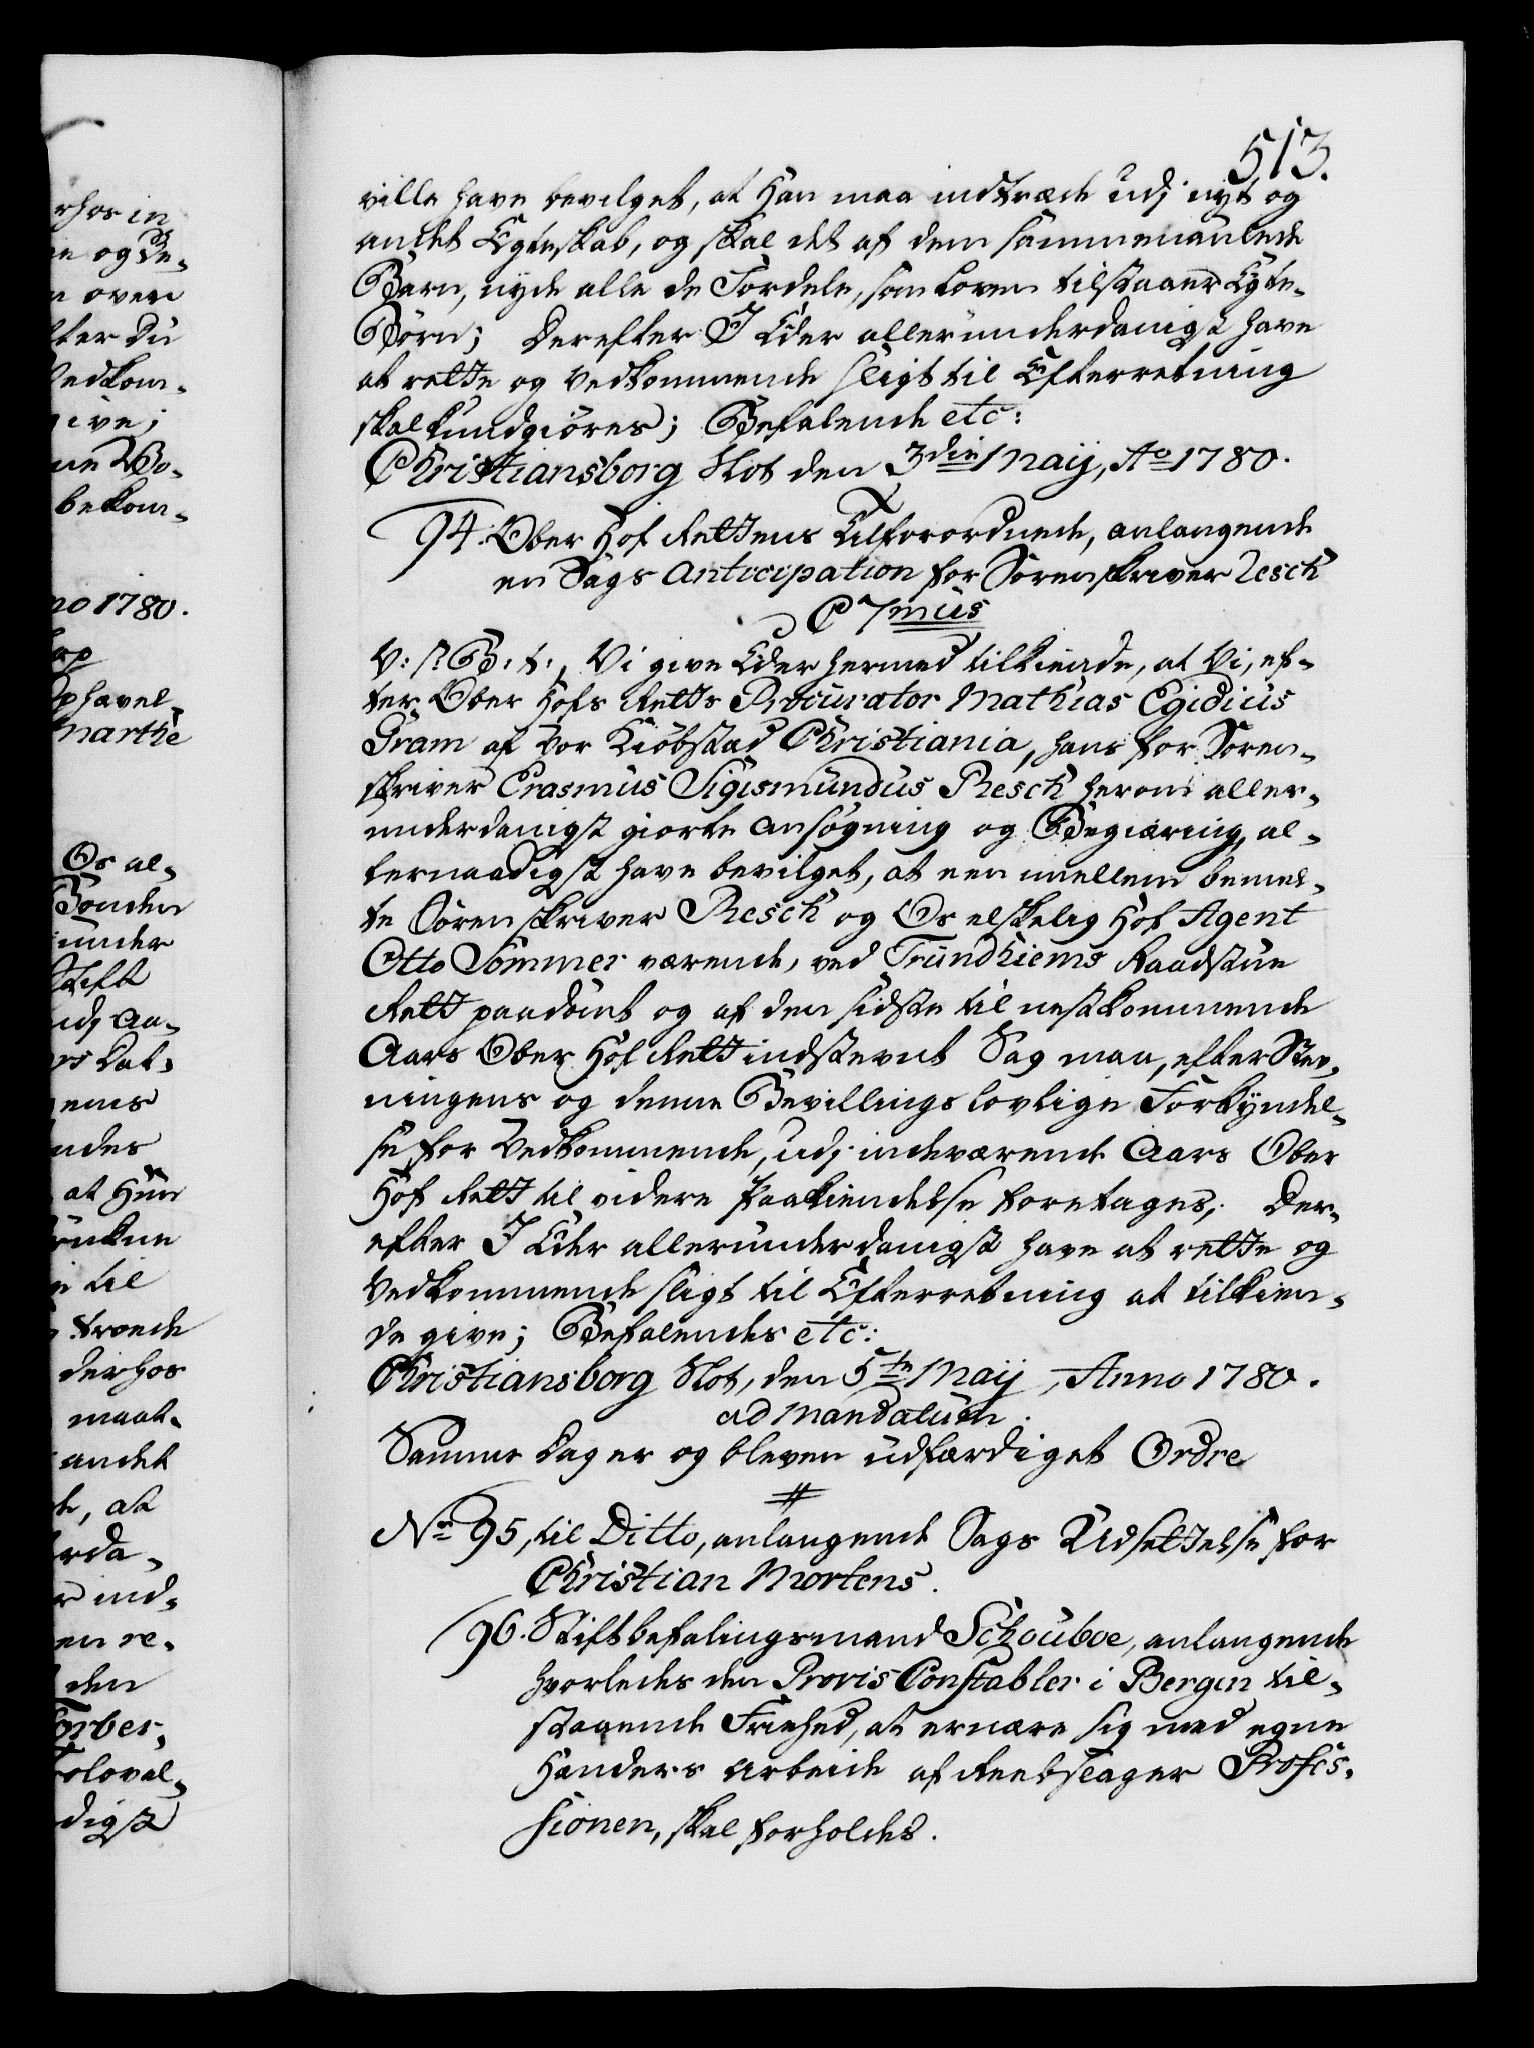 513.
ville have bevilget, at Han maa indtræde udj nyt og
andet Egteskab, og skal det af dem sammenaulede
Børn, nyde alle de Fordele, som Loven tilstaaer Egte-
Børn; Derefter I Eder allerunderdanigst have
at rette og Vedkommende sligt til Efterretning
skal kundgiøres; Befalende etc:
Christiansborg Slot den 3die Maij, Ao 1780.
94. Ober Hof Rettens Tilforordnede, anlangende
en Sags Anticipation for Sorenskriver Resch
C 7mus
V: s: G: t:, Vi give Eder hermed tilkiende, at Vi, ef-
ter Ober Hofs Retts Procurator Mathias Egidius
Gram af Vor Kiøbstad Christiania, hans for Soren-
skriver Erasmus Sigismundus Resch herom aller-
underdanigst giorte Ansøgning og Begiæring, al-
lernaadigst have bevilget, at een imellem bemel-
te Sorenskriver Resch og Os elskelig Hof Agent
Otto Sommer værende, ved Trundhiems Raadstue
Rett paadømt og af den sidste til nestkommende
Aars Ober Hof Rett indstevnt Sag maa, efter Stev-
ningens og denne Bevillings lovlige Forkyndel-
se for Vedkommende, udj indeværende Aars Ober
Hof Rett til videre Paakiendelse foretages; Der-
efter I Eder allerunderdanigst have at rette og
Vedkommende sligt til Efterretning at tilkien-
de give; Befalendes etc:
Christiansborg Slot, den 5te Maij, Anno 1780.
ad Mandatum.
Samme Dag er og bleven udfærdiget Ordre
#
No 95, til Ditto, anlangende Sags Udsettelse for
Christian Mortens.
96. Stiftbefalingsmand Schouboe, anlangende
hvorledes den Provis Constabler i Bergen til-
staaende Friehed, at ernære sig med egne
Hænders Arbeide af Reebslager Profes-
sionen, skal forholdes.